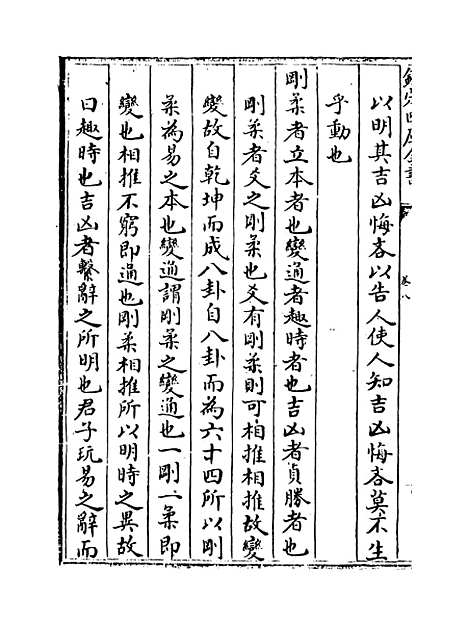 欽定四庫全書
卷八
以明其吉凶悔吝以告人使人知吉凶悔吝莫不生
乎動也
剛柔者立本者也變通者趣時者也吉凶者貞勝者也
剛柔者爻之剛柔也爻有剛柔則可相推相推故變
變故自乾坤而成八卦自八卦而為六十四所以剛
柔為易之本也變通謂剛柔之變通也一剛一柔即
變也相推不窮即通也剛柔相推所以明時之異故
曰趣時也吉凶者繫辭之所明也君子玩易之辭而